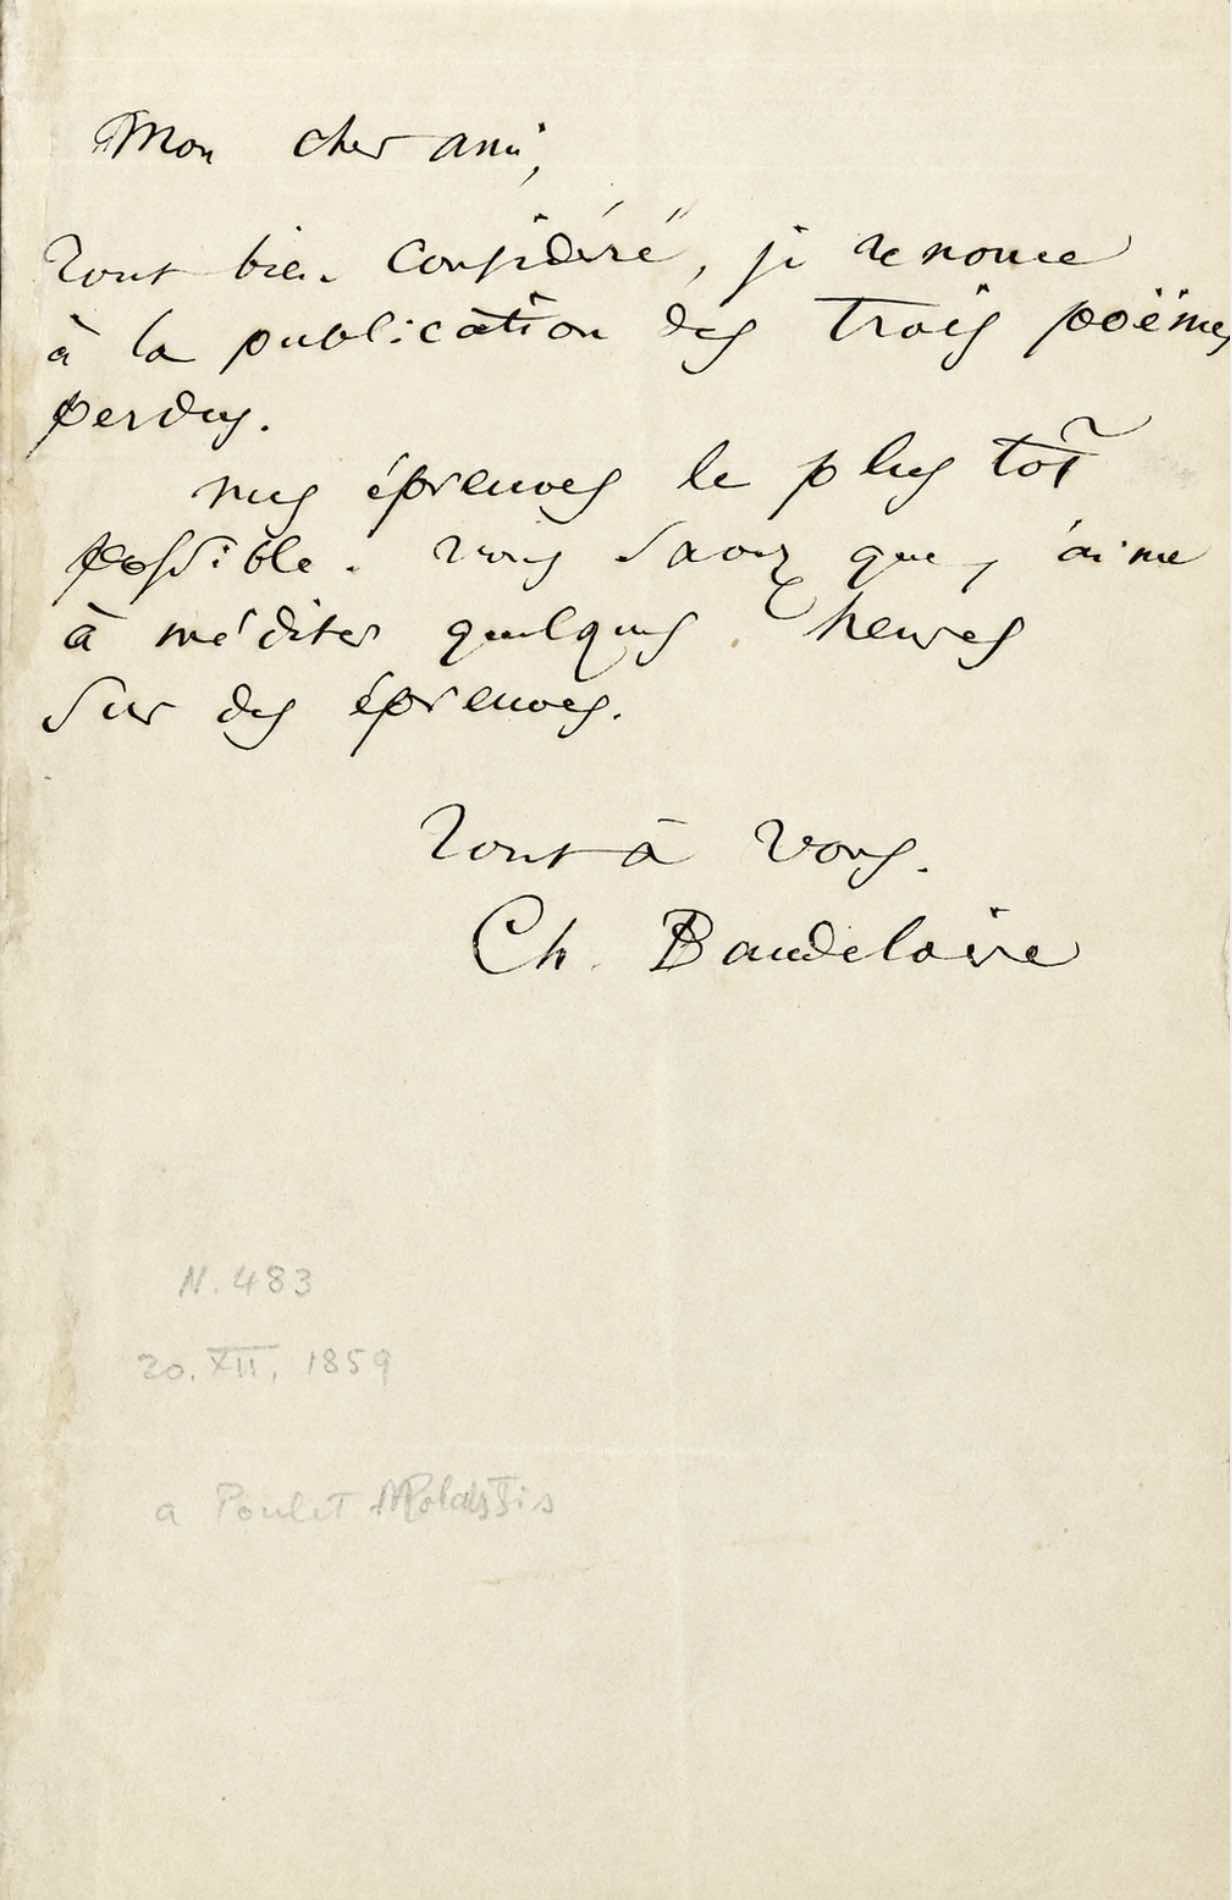 Mon cher ami,
Tout bien considéré, je renonce
à la publication des trois poëmes
perdus.
mes épreuves le plus tôt
possible. Vous savez que j'aime
à méditer quelques heures
sur des épreuves.
Tout à vous.
Ch. Baudelaire
N. 483
20. XII. 1859
a Poulet Malassis